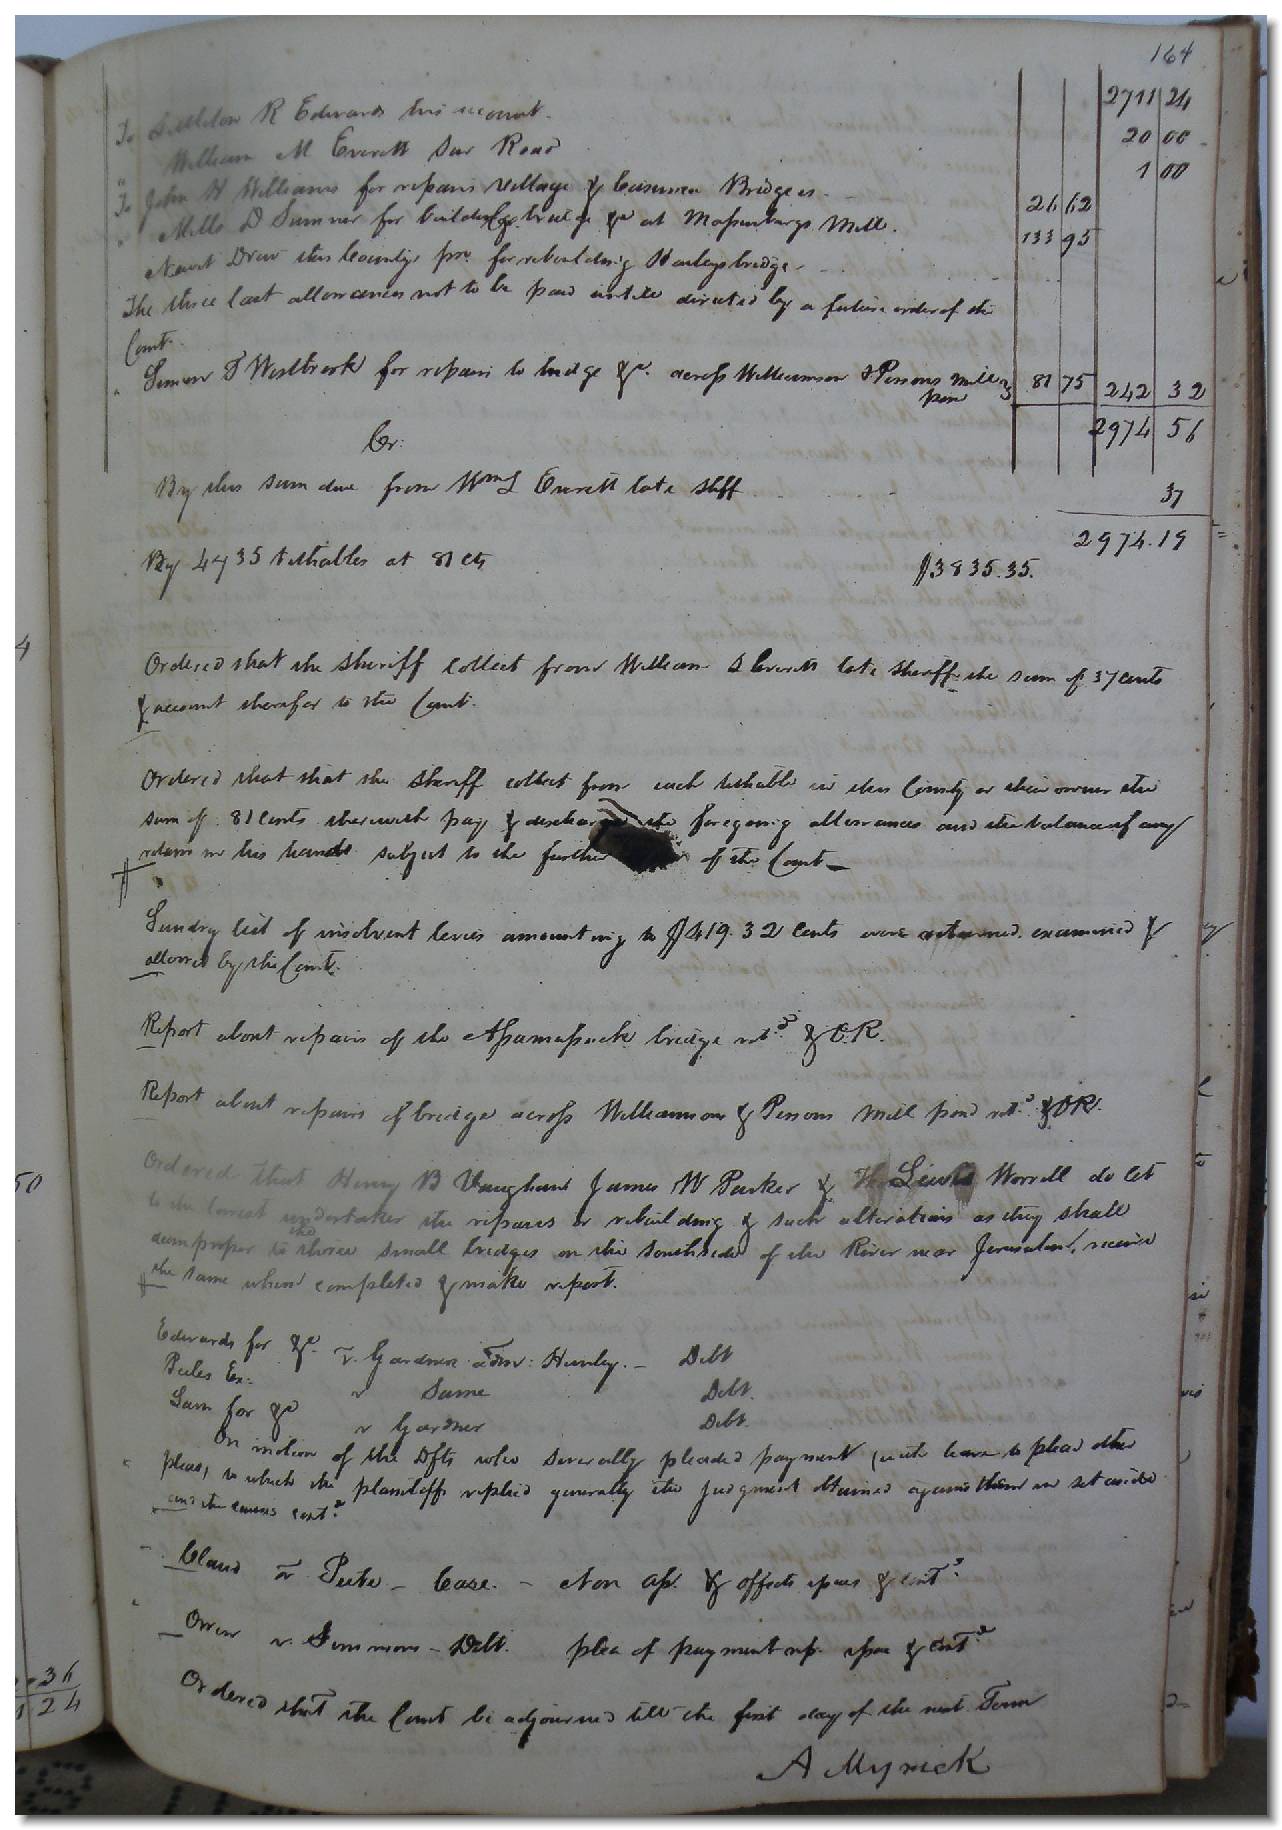 164
2711 24
To Littleton R Edwards his account. 20 00
" William M Everett Sur Road 1 00
To John H Williams for repairs Village & Bridges. 26 62
" Mills D Sumner for building bridge &c at Massenburgs Mill. 133 95
Newit Drew this Countys pro. for rebuilding Hanleys bridge
The three last allowances not to be paid untill directed by a future order of the
Court.
" Simon T Westbrook for repairs to bridge &c. across Williamson & Persons Mill pond 81 75 242 32
2974 56
Cr:
By this sum due from Wm L Everett late Shff 37
2974.19
By 4735 tithables at 81 cts $3835.35.
Ordered that the Sheriff collect from William L Everett late Sheriff the sum of 37 cents
& account therefor to the Court.
Ordered that that the Sheriff collect from each tithable in this County or their owner the
sum of 81 Cents therewith pay & discharge the foregoing allowances and the balance if any
retain in his hands subject to the further of the Court
Sundry list of insolvent levies amounting to $419.32 cents were returned. examined &
allowed by the Court.
Report about repairs of the Assamasock bridge retd & O.R.
Report about repairs of bridge across Williamson & Persons Mill pond retd & OR.
Ordered that Henry B Vaughan James W Parker & Lewis Worrell do let
to the lowest undertaker the repairs or rebuilding & such alterations as they shall
deem proper to the three small bridges on the south side of the River near Jerusalem, receive
the same when completed & make report.
Edwards for &c. v. Gardner admr: Hunly. - Debt
Peeles Ex: v Same Debt.
Sam for &c v Gardner Debt.
On motion of the Dfts who severally pleaded payment (with leave to plead other
pleas, to which the plaintiffs replied generally the judgment obtained against them is set aside
and the causes contd
Claud v Peete - Case. - Non ass. & offsets issues & contd
Owen v. Simmons - Debt. plea of payment rep. issue & contd
Ordered that the Court be adjourned till the first day of the next Term
A Myrick
4
50
36
124